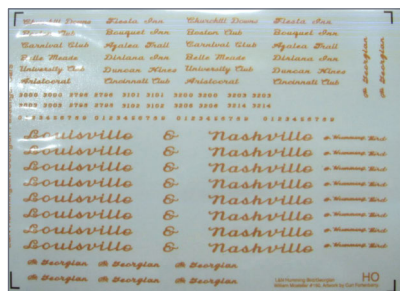 Churchill Downs Fiesta Inn Churchill Downs Fiesta Inn
Boston Club Bouquet Inn Boston Club Bouquet Inn
Carnival Club Azalea Trail Carnival Club Azalea Trail
Belle Meade Dixiana Inn Belle Meade Dixiana Inn
University Club Duncan Hines University Club Duncan Hines
Aristocrat Cincinnati Club Aristocrat Cincinnati Club
The Georgian
The Georgian
0123456789 0123456789 0123456789 0123456789
Louisville & Nashville The Humming Bird
Louisville & Nashville The Humming Bird
Louisville & Nashville The Humming Bird
Louisville & Nashville The Humming Bird
Louisville & Nashville The Humming Bird
Louisville & Nashville The Humming Bird
Louisville & Nashville The Humming Bird
Louisville & Nashville The Humming Bird
The Georgian The Georgian The Georgian
The Georgian The Georgian The Georgian
HO